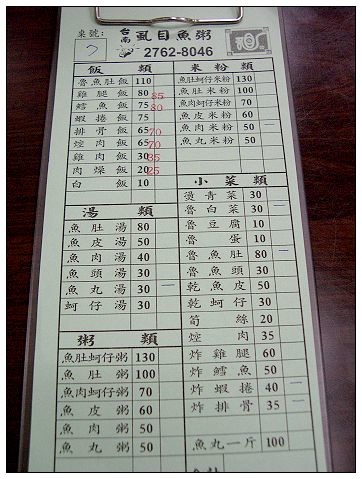 桌號：
7
台南 虱目魚粥
2762-8046
飯類
魯魚肚飯 110
雞腿飯 80 85
鱈魚飯 75
蝦捲飯 75
排骨飯 65 70
焢肉飯 65 70
雞肉飯 30 35
肉燥飯 20 25
白飯 10
湯類
魚肚湯 80
魚皮湯 50
魚肉湯 40
魚頭湯 30
魚丸湯 30 一
蚵仔湯 30
粥類
魚肚蚵仔粥 130
魚肚粥 100
魚肉蚵仔粥 70
魚皮粥 60
魚肉粥 50
魚丸粥 50
米粉類
魚肚蚵仔米粉 130
魚肚米粉 100
魚肉蚵仔米粉 70
魚皮米粉 60
魚肉米粉 50 一
魚丸米粉 50
小菜類
燙青菜 30
魯白菜 30 一
魯豆腐 10
魯蛋 10
魯魚肚 80 一
魯魚頭 30
乾魚皮 50 一
乾蚵仔 30
筍絲 20
焢肉 35
炸雞腿 60
炸鱈魚 50
炸蝦捲 40 一
炸排骨 35 一
魚丸一斤 100